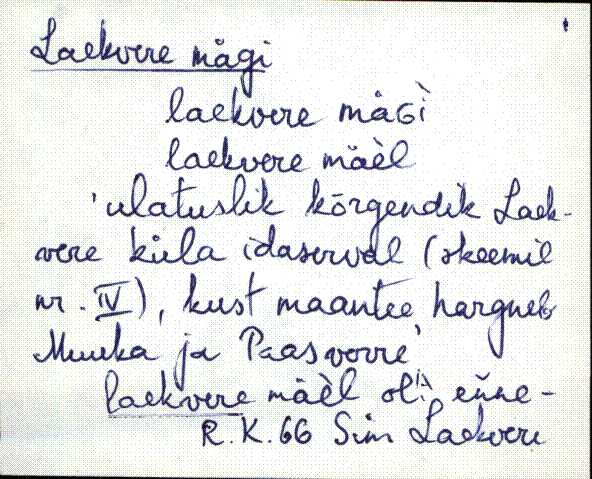 Laekvere mägi
laekvere mäGì
laekvere mäèl
'ulatuslik kõrgendik Laek-
vere küla idaserval (skeemil
nr. IV), kust maantee hargneb
Muuka ja Paasverre'
laekvere mäèl oli eňne -
R.K.66 Sim Laekvere